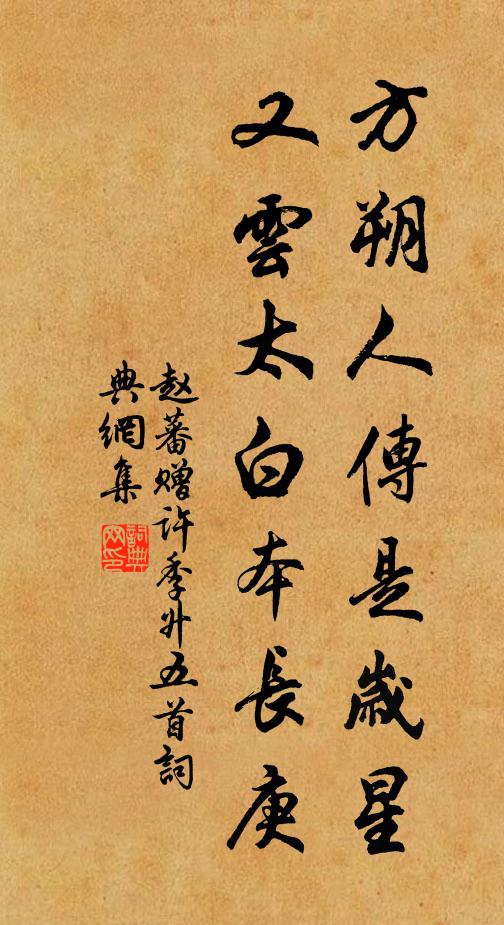 方朔人傳是歲星
又雲太白本長庚
赵蕃贈許季升五首詞
典網集
詞典
网印